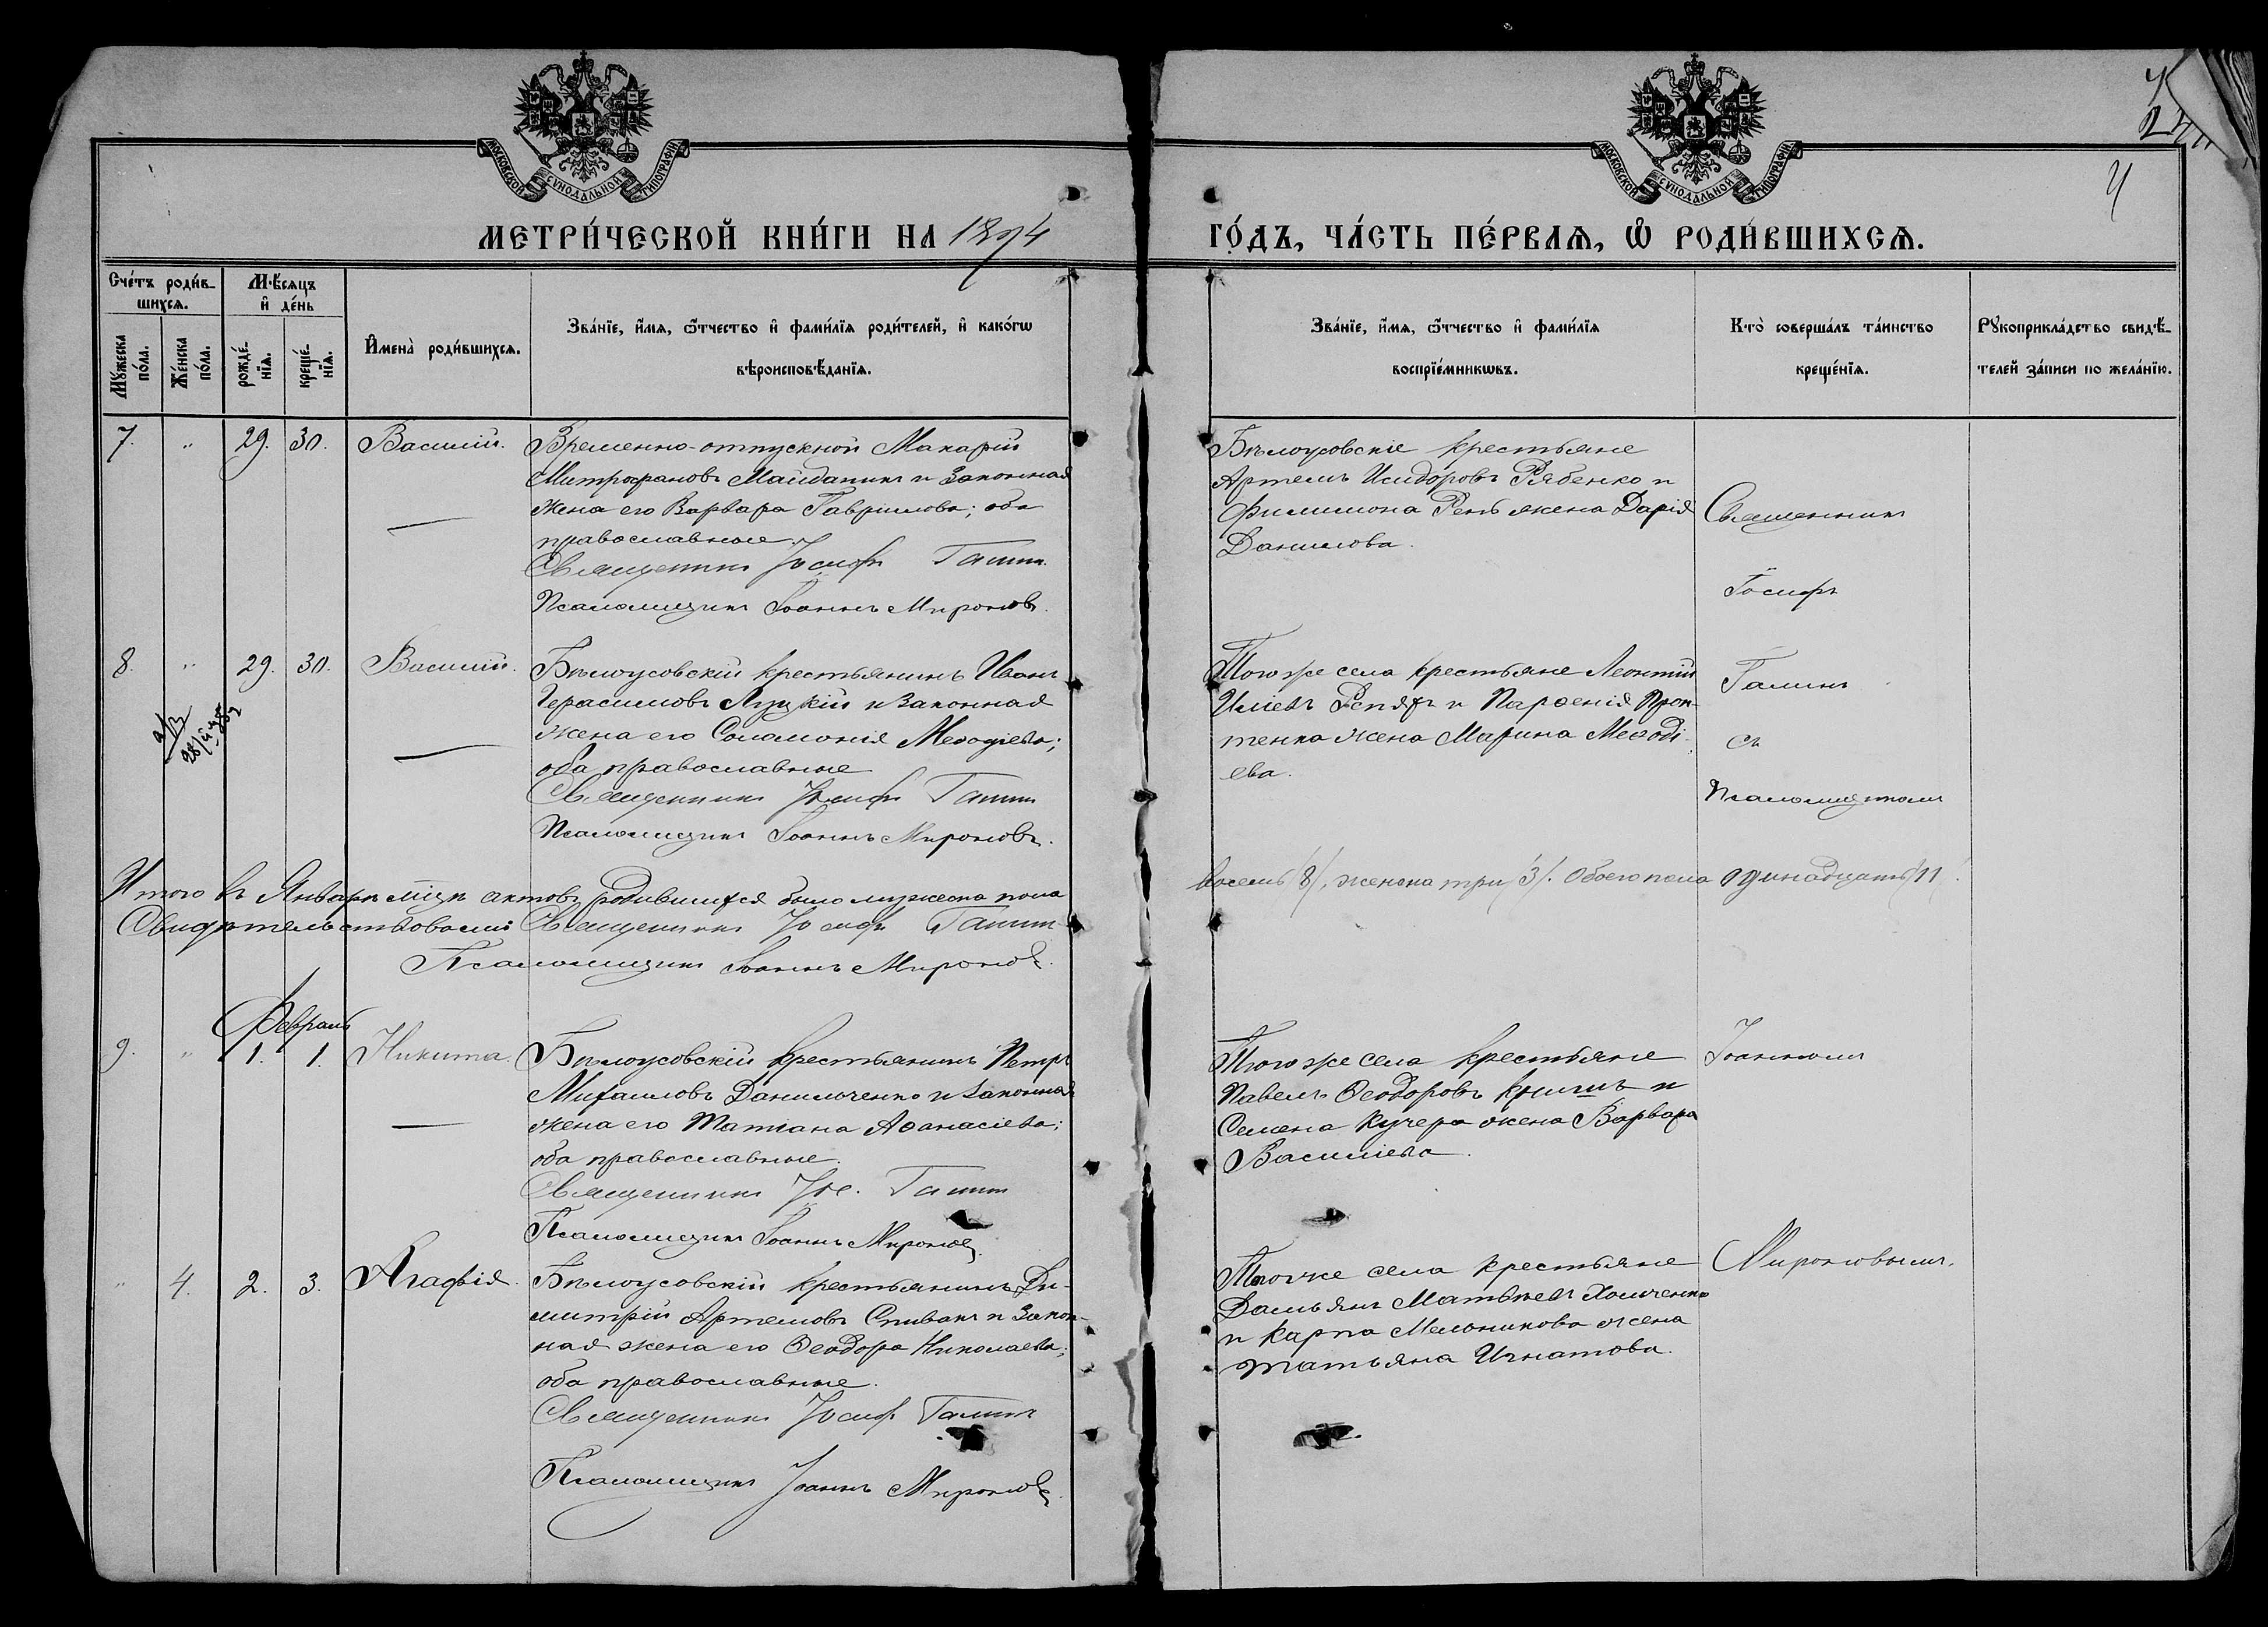 МОСКОВСКОЙ СѴНОДАЛЬНОЙ ТИПОГРАФІИ
МОСКОВСКОЙ СѴНОДАЛЬНОЙ ТИПОГРАФІИ
4
МЕТРИ́ЧЕСКОЙ КНИ́ГИ НА 1894
ГО́ДЪ, ЧА́СТЬ ПЕ́РВАѦ, Ѡ РОДИ́ВШИХСѦ.
Сче́тъ роди́в-
шихсѧ.
Мѣ́сѧцъ
и де́нь
Мꙋ́жеска по́ла.
Же́нска по́ла.
рожде́-нїѧ.
креще́-нїѧ.
Имена̀ роди́вшихсѧ.
Зва́нїе, и́мѧ, ѻ́тчество и фами́лїѧ роди́телей, и како́гѡ
вѣроисповѣ́данїѧ.
Зва́нїе, и́мѧ, ѻ́тчество и фами́лїѧ
воспрїе́мникѡвъ.
Кто̀ соверша́лъ та́инство
креще́нїѧ.
Рꙋкоприкла́дство свидѣ́-
телей за́писи по жела́нїю.
7. " 29. 30. Василій.
Временно-отпускной Макарій
Митрофановъ Майданикъ и законная
жена его Варвара Гавріилова; оба
православные.
Священникъ Іосифъ Галинъ
Псаломщикъ Іоаннъ Мироновъ.
Бѣлоусовскіе крестьяне
Артемъ Исидоровъ Рябенко и
Филимона жена Дарія
Данилова.
Священникъ
Іосифъ
8. " 29. 30. Василій.
Бѣлоусовскій крестьянинъ Иванъ
Герасимовъ Луцкій и законная
жена его Соломонія Меѳодіева;
оба православные
Священникъ Іосифъ Галинъ
Псаломщикъ Іоаннъ Мироновъ.
Того же села крестьяне Леонтій
Иліевъ Репяхъ и Парѳенія Кроп-
тенка жена Марина Меѳоді-
ева.
Галинъ
съ
Псаломщикомъ
Итого въ Январѣ м̃цѣ актовъ родившихся было мужеска пола
восемь /8/, женска три /3/. Обоего пола одинадцать /11/.
Свидѣтельствовали Священникъ Іосифъ Галинъ
Псаломщикъ Іоаннъ Мироновъ.
Февраль
9. " 1. 1. Никита.
Бѣлоусовскій крестьянинъ Петръ
Михаиловъ Данильченко и законная
жена его Татіана Аѳанасіева;
оба православные.
Священникъ Іос. Галинъ
Псаломщикъ Іоаннъ Мироновъ.
Того же села крестьяне
Павелъ Ѳеодоровъ Книшъ и
Семена Кучера жена Варвара
Василіева.
Іоанномъ
" 4. 2. 3. Агафія.
Бѣлоусовскій крестьянинъ Ди-
митрій Артемовъ Спивакъ и закон-
ная жена его Ѳеодора Николаева;
оба православные.
Священникъ Іосиф Галинъ
Псаломщикъ Іоаннъ Мироновъ.
Того же села крестьяне
Дамьянъ Матвѣевъ Хомченко
и Карпа Мельникова жена
Татьяна Игнатова.
Мироновымъ.